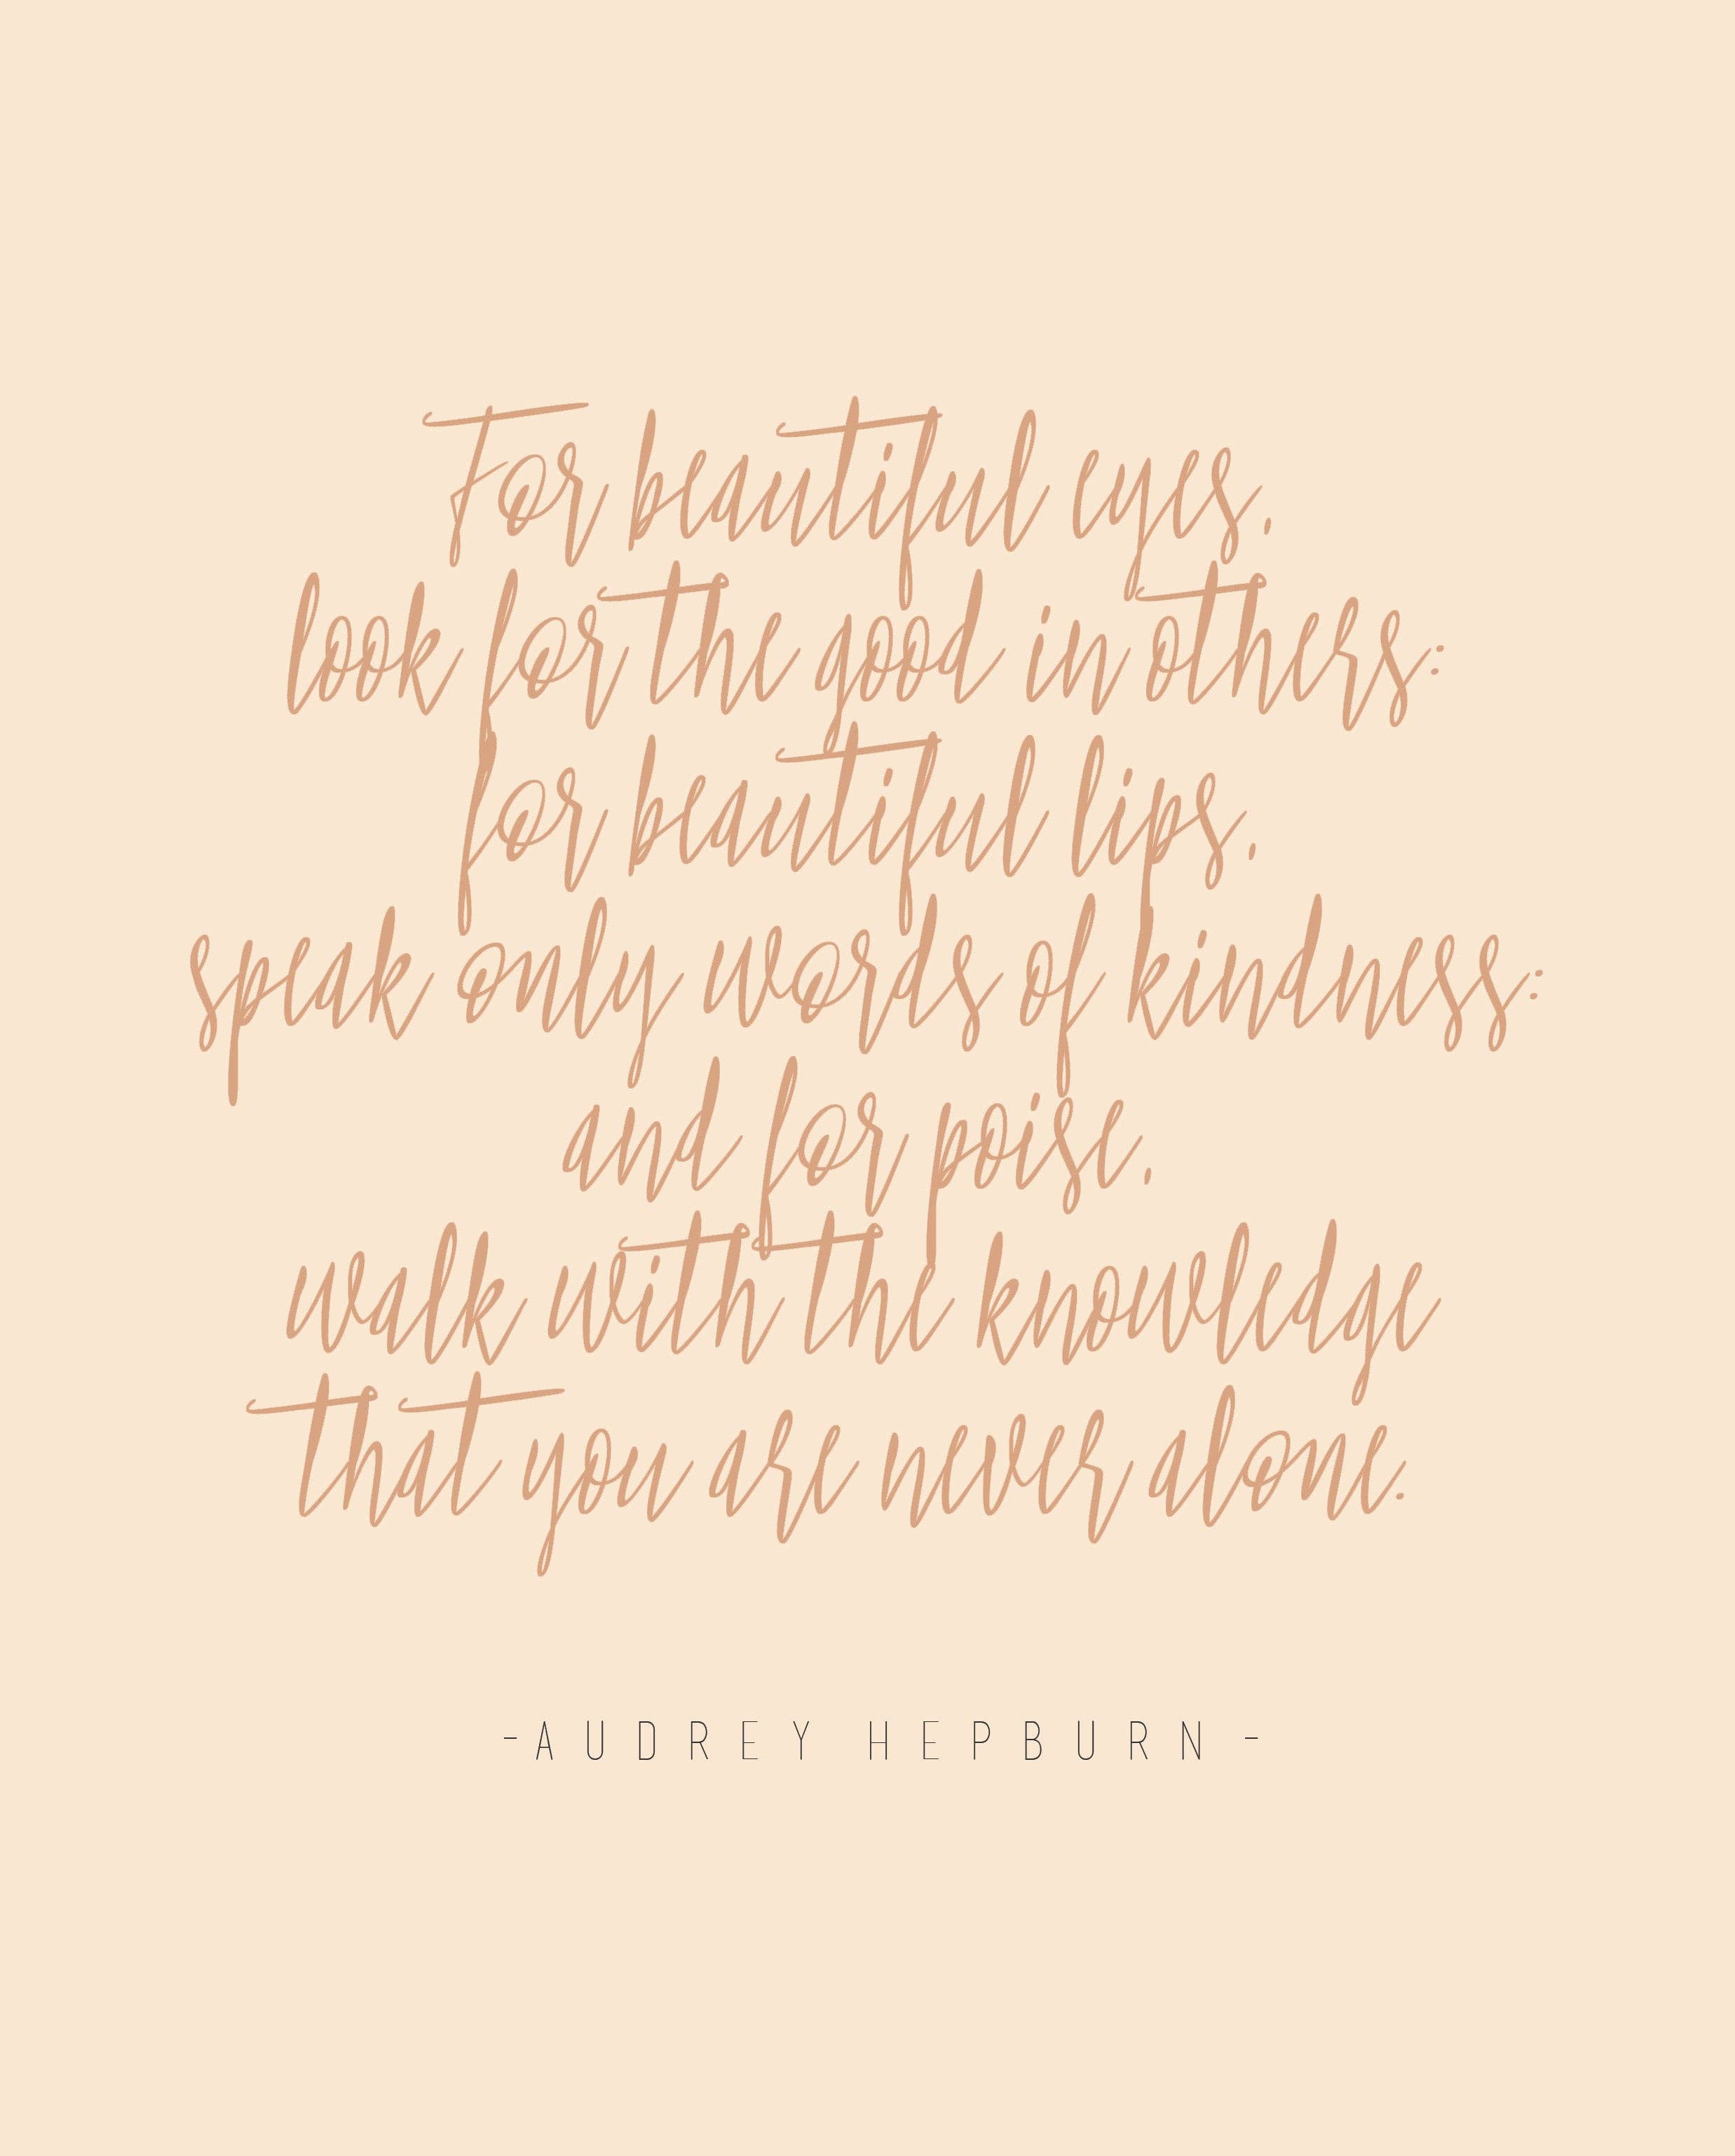 For beautiful eyes,
look for the good in others;
for beautiful lips,
speak only words of kindness;
and for poise,
walk with the knowledge
that you are never alone.
-AUDREY HEPBURN -